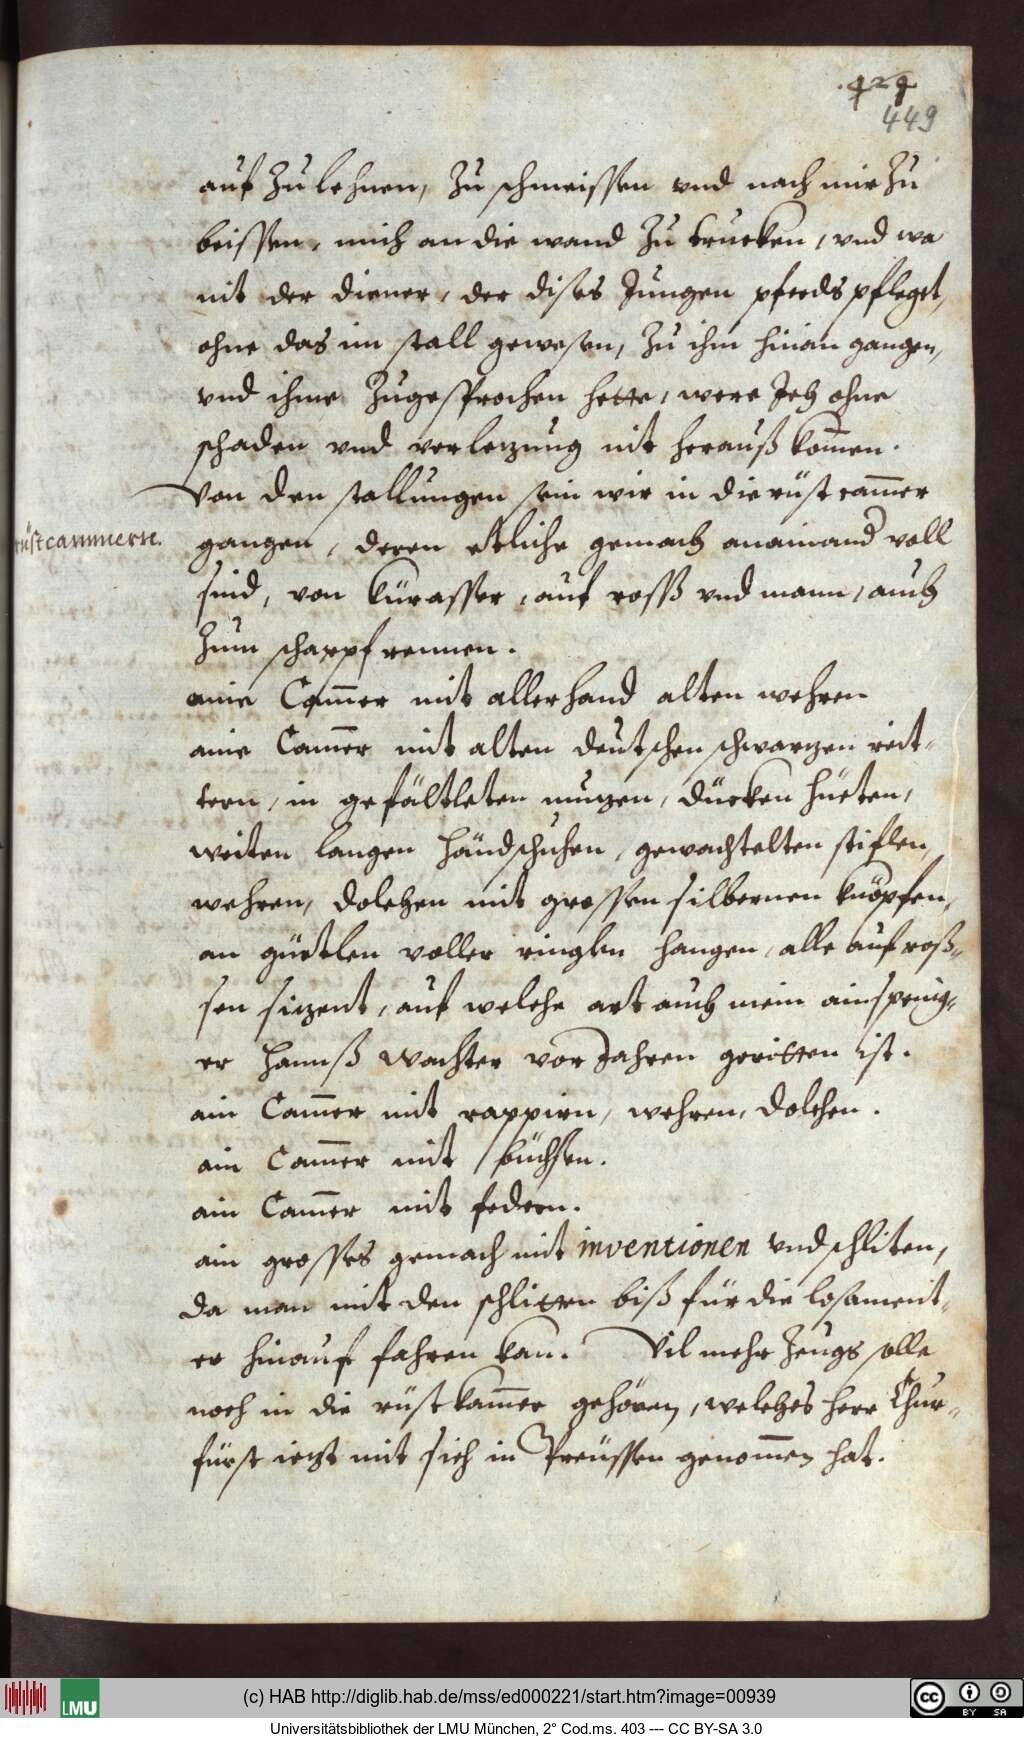 .424
449
auf Zu lehnen, Zu schmeissen vnd nach mir Zu
beissen, mich an die wand Zu trucken, vnd wa
nit der diener, der dises Jungen pferds pfleget,
ohne das im stall gewesen, Zu ihm hinan gangen,
vnd ihme Zugesprochen hette, were Ich ohne
schaden vnd verlezung nit herauß kom̄en.
Von den stallungen sein wir in die rüst cam̄er
rüstcammern.
gangen, deren etliche gemach anainand voll
sind, von Kürasser, auf rosß vnd mann, auch
Zum scharpf rennen.
ain Cam̄er mit allerhand alten wehren
ain Cam̄er mit alten deutschen schwarzen reit-
tern, in gefältleten muzen, dücken hüeten,
weiten langen händschuhen, gewachtelten stiflen,
wehren, dolchen mit grossen silbernen knöpfen,
an güetlen voller ringlen hangen, alle auf roß-
sen sizent, auf welche art auch mein ainspenig-
er Hannß Wachter vor Jahren geritten ist.
ain Cam̄er mit rappirn, wehren, dolchen.
ain Cam̄er mit büchsen.
ain Cam̄er mit federn.
ain grosses gemach mit inventionen vnd schliten,
da man mit den schlitten biß für die losament-
er hinauf fahren kan. Vil mehr Zeugs solle
noch in die rüst kam̄er gehören, welches herr Chur-
fürst iezt mit sich in Preüssen genom̄en hat.
(c) HAB http://diglib.hab.de/mss/ed000221/start.htm?image=00939
LMU
cc BY SA
Universitätsbibliothek der LMU München, 2° Cod.ms. 403 --- CC BY-SA 3.0